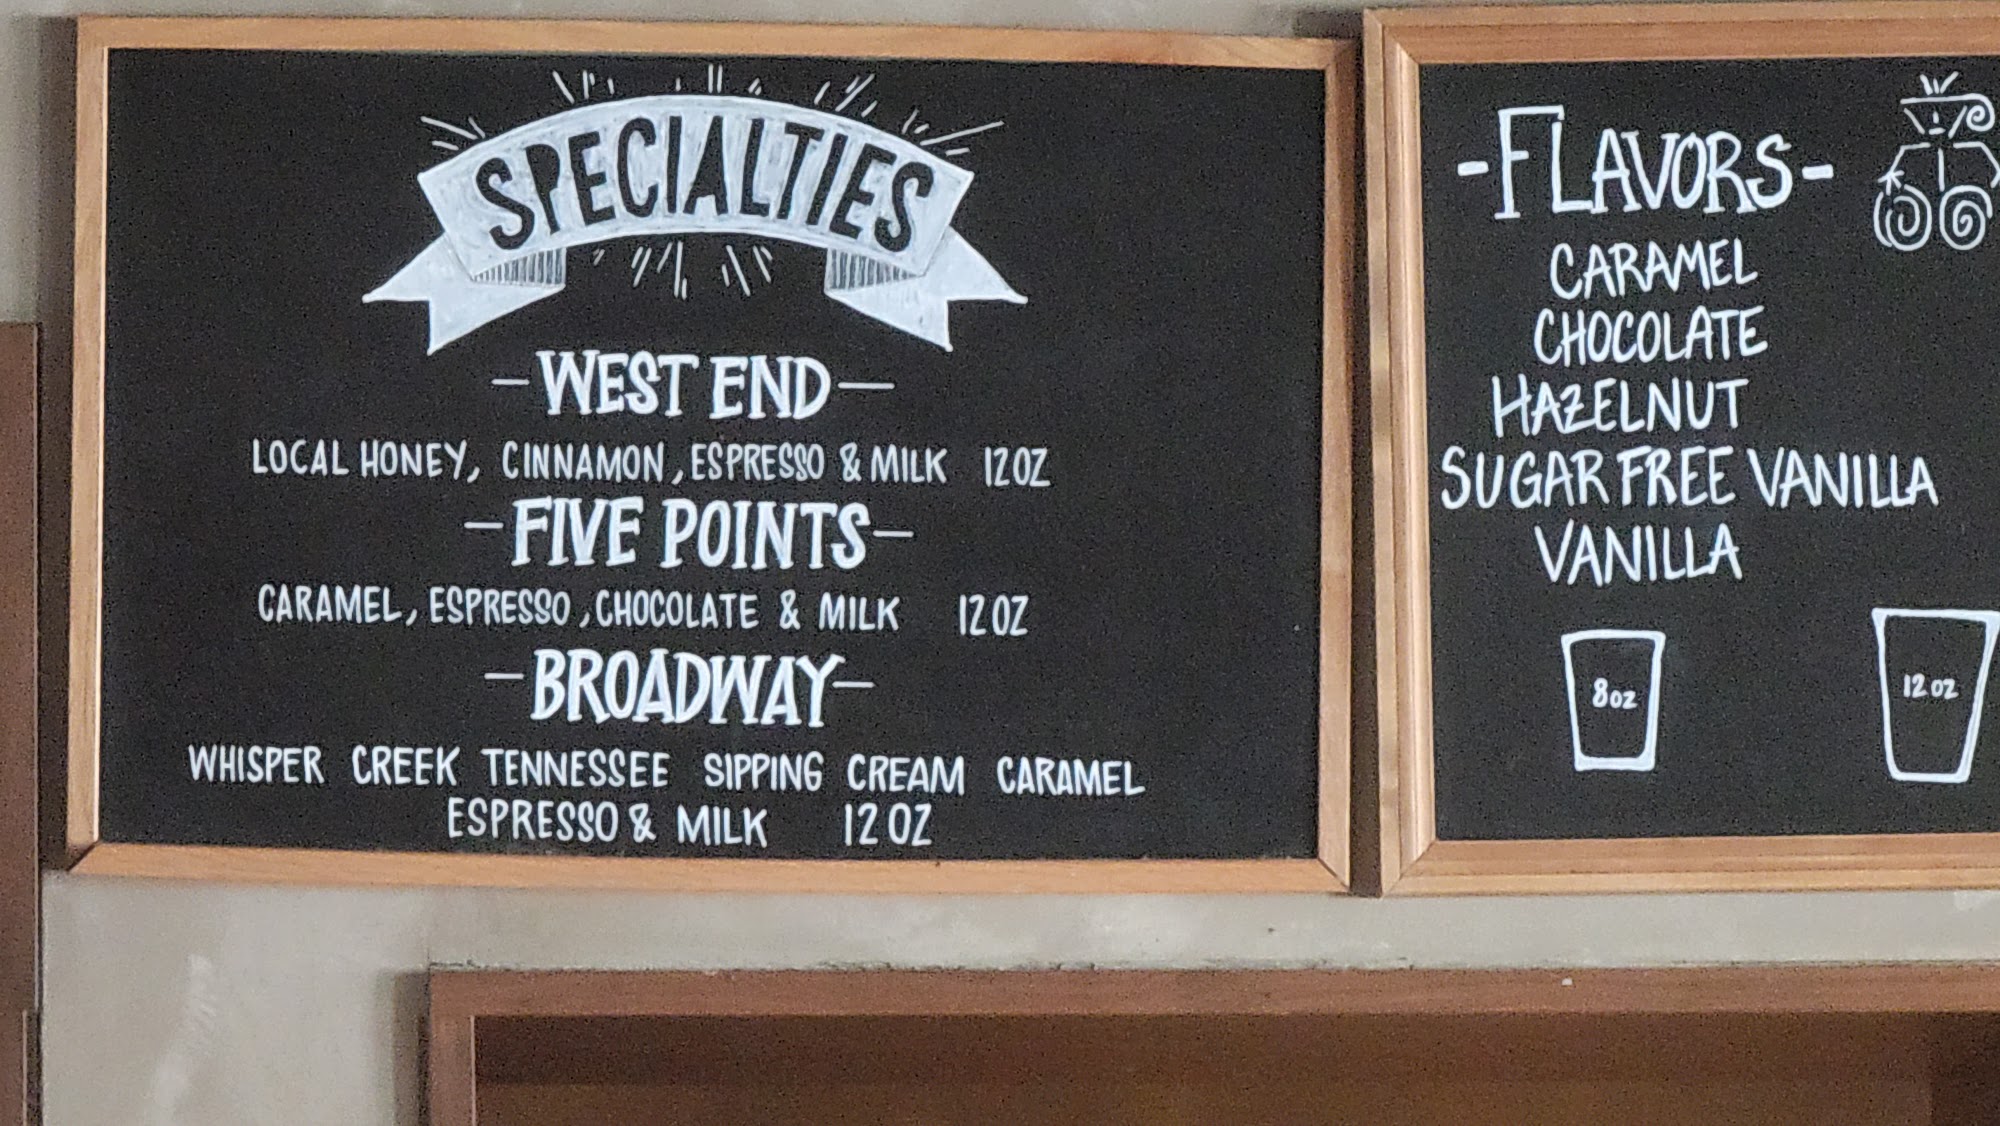 SPECIALTIES
-WEST END-
LOCAL HONEY, CINNAMON, ESPRESSO & MILK 12OZ
-FIVE POINTS-
CARAMEL, ESPRESSO, CHOCOLATE & MILK 12OZ
-BROADWAY-
WHISPER CREEK TENNESSEE SIPPING CREAM CARAMEL
ESPRESSO & MILK 12OZ
-FLAVORS-
CARAMEL
CHOCOLATE
HAZELNUT
SUGAR FREE VANILLA
VANILLA
8OZ
12OZ